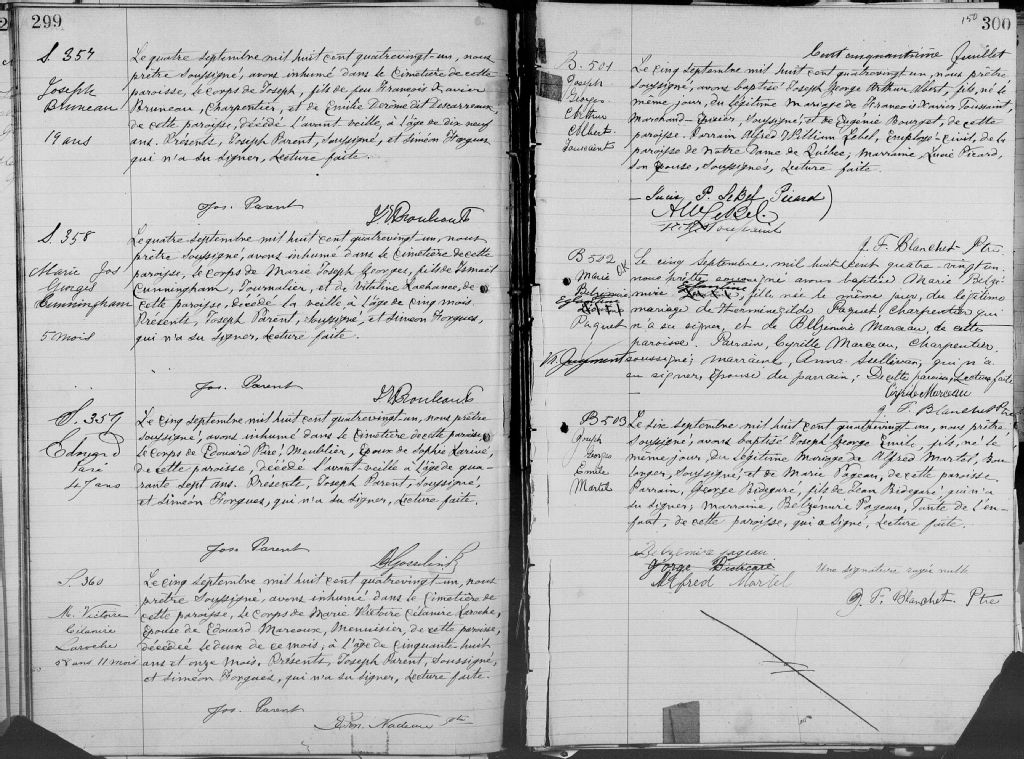 299
S. 357
Joseph
Bruneau
19 ans
Le quatre septembre mil huit cent quatrevingt-un, nous
prêtre soussigné, avons inhumé dans le Cimetière de cette
paroisse, le corps de Joseph, fils de feu Francois Xavier
Bruneau, Charpentier, et de Emilie Derôme dit Descarreaux,
de cette paroisse, décédé l'avant veille, à l'âge de dix neuf
ans. Présents, Joseph Parent, soussigné, et Siméon Forgues,
qui n'a su signer, Lecture faite.
Jos. Parent
S. 358
Marie Jos
Georges
Cunningham
5 mois
Le quatre septembre mil huit cent quatrevingt-un, nous
prêtre soussigné, avons inhumé dans le Cimetière de cette
paroisse, le corps de Marie Joseph Georges, fils de Ismaël
Cunningham, Journalier, et de Vitaline Lachance, de
cette paroisse, décédé la veille à l'âge de cinq mois.
Présents, Joseph Parent, soussigné, et Siméon Forgues,
qui n'a su signer, Lecture faite.
Jos. Parent
S. 359
Edouard
Paré
47 ans
Le cinq septembre mil huit cent quatrevingt-un, nous prêtre
soussigné, avons inhumé dans le Cimetière de cette paroisse
le corps de Edouard Paré, Meublier, Epoux de Sophie Larivé,
de cette paroisse, décédé l'avant veille à l'âge de qua-
rante sept ans. Présents, Joseph Parent, soussigné,
et Siméon Forgues, qui n'a su signer, Lecture faite.
Jos. Parent
S. 360
M. Victoire
Citanire
Laroche
58 ans 11 mois
Le cinq septembre mil huit cent quatrevingt-un, nous
prêtre soussigné, avons inhumé dans le Cimetière de
cette paroisse, le corps de Marie Victoire Citanire Laroche,
Epouse de Edouard Marcoux, Menuisier, de cette paroisse,
décédée le deux de ce mois, à l'âge de cinquante-huit
ans et onze mois. Présents, Joseph Parent, soussigné,
et Siméon Forgues, qui n'a su signer, Lecture faite.
Jos. Parent
Nadeau ptre
150 300
Cent cinquantième feuillet
B. 501
Joseph
Georges
Arthur
Albert
Toussaint
Le cinq septembre mil huit cent quatrevingt-un, nous prêtre
soussigné, avons baptisé Joseph George Arthur Albert, fils, né le
même jour, du légitime mariage de Francois Xavier Toussaint,
Marchand-Epicier, soussigné, et de Eugénie Bourget, de cette
paroisse. Parrain Alfred William Lebel, Employé Civil, de la
paroisse de Notre Dame de Québec; marraine, Lucie Picard,
son épouse, soussignés, Lecture faite.
Lucie P. LeBel Picard
A W LeBel.
J. F. Blanchet Ptre
B 502
Marie
Belzémire
Paquet
Le cinq septembre, mil huit cent quatre-vingt-un
nous prêtre soussigné avons baptisé Marie Belzé-
mire, fille, née le même jour, du légitime
mariage de Herménégilde Paquet Charpentier qui
n'a su signer, et de Belzémire Marceau, de cette
paroisse. Parrain, Cyrille Marceau, Charpentier,
soussigné; marraine, Anna Sullivan, qui n'a
su signer, épouse du parrain; De cette paroisse, Lecture faite
Cyrille Marceau
J. F. Blanchet Ptre
B 503
Joseph
Georges
Emile
Martel
Le six septembre mil huit cent quatrevingt-un, nous prêtre
soussigné, avons baptisé Joseph George Emile, fils, né le
même jour du légitime mariage de Alfred Martel, Bou-
langer, soussigné, et de Marie Pageau, de cette paroisse
Parrain, George Bidégaré, fils de Jean Bidégaré, qui n'a
su signer; marraine, Belzémire Pageau, Tante de l'en-
fant, de cette paroisse, qui a signé, Lecture faite.
Belzémire pageau
Alfred Martel
Une signature rayée nulle
J. F. Blanchet Ptre